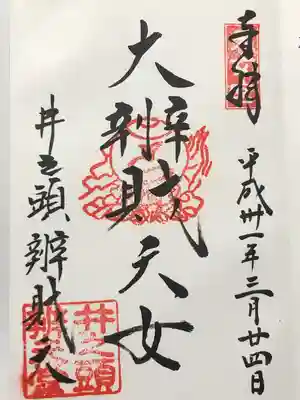 奉拜
平成卅一年三月廿四日
大辨財天女
井之頭辨財天
井之頭